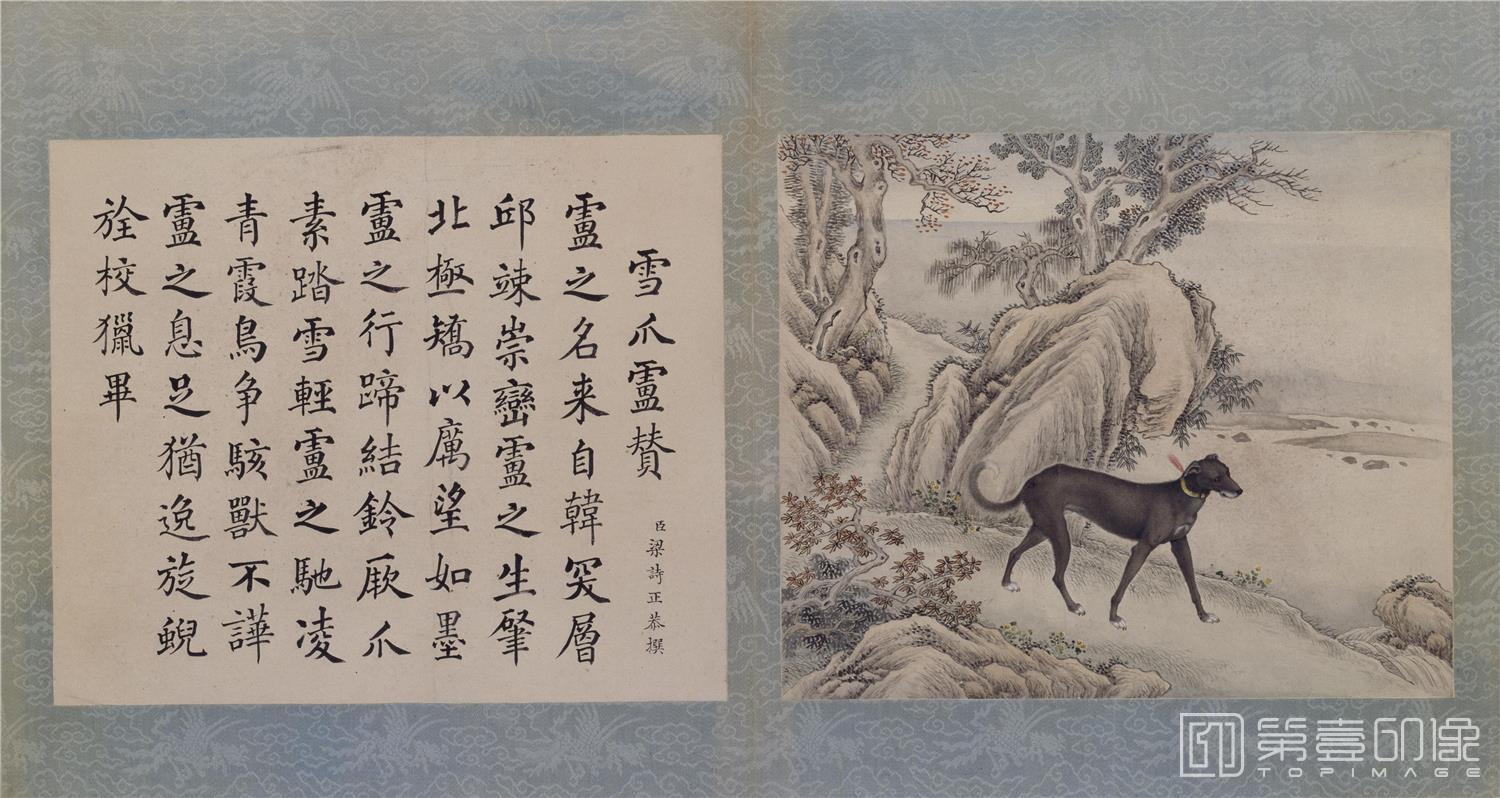 雪爪盧賛
臣梁詩正恭撰
盧之名来自韓突層
邱竦崇巒盧之生肇
北極矯以厲望如墨
盧之行蹄結鈴厥爪
素踏雪輕盧之馳凌
青霞鳥争駭獸不譁
盧之息足猶逸旋蜺
旌校獵畢
第壹印像
TOPIMAGE